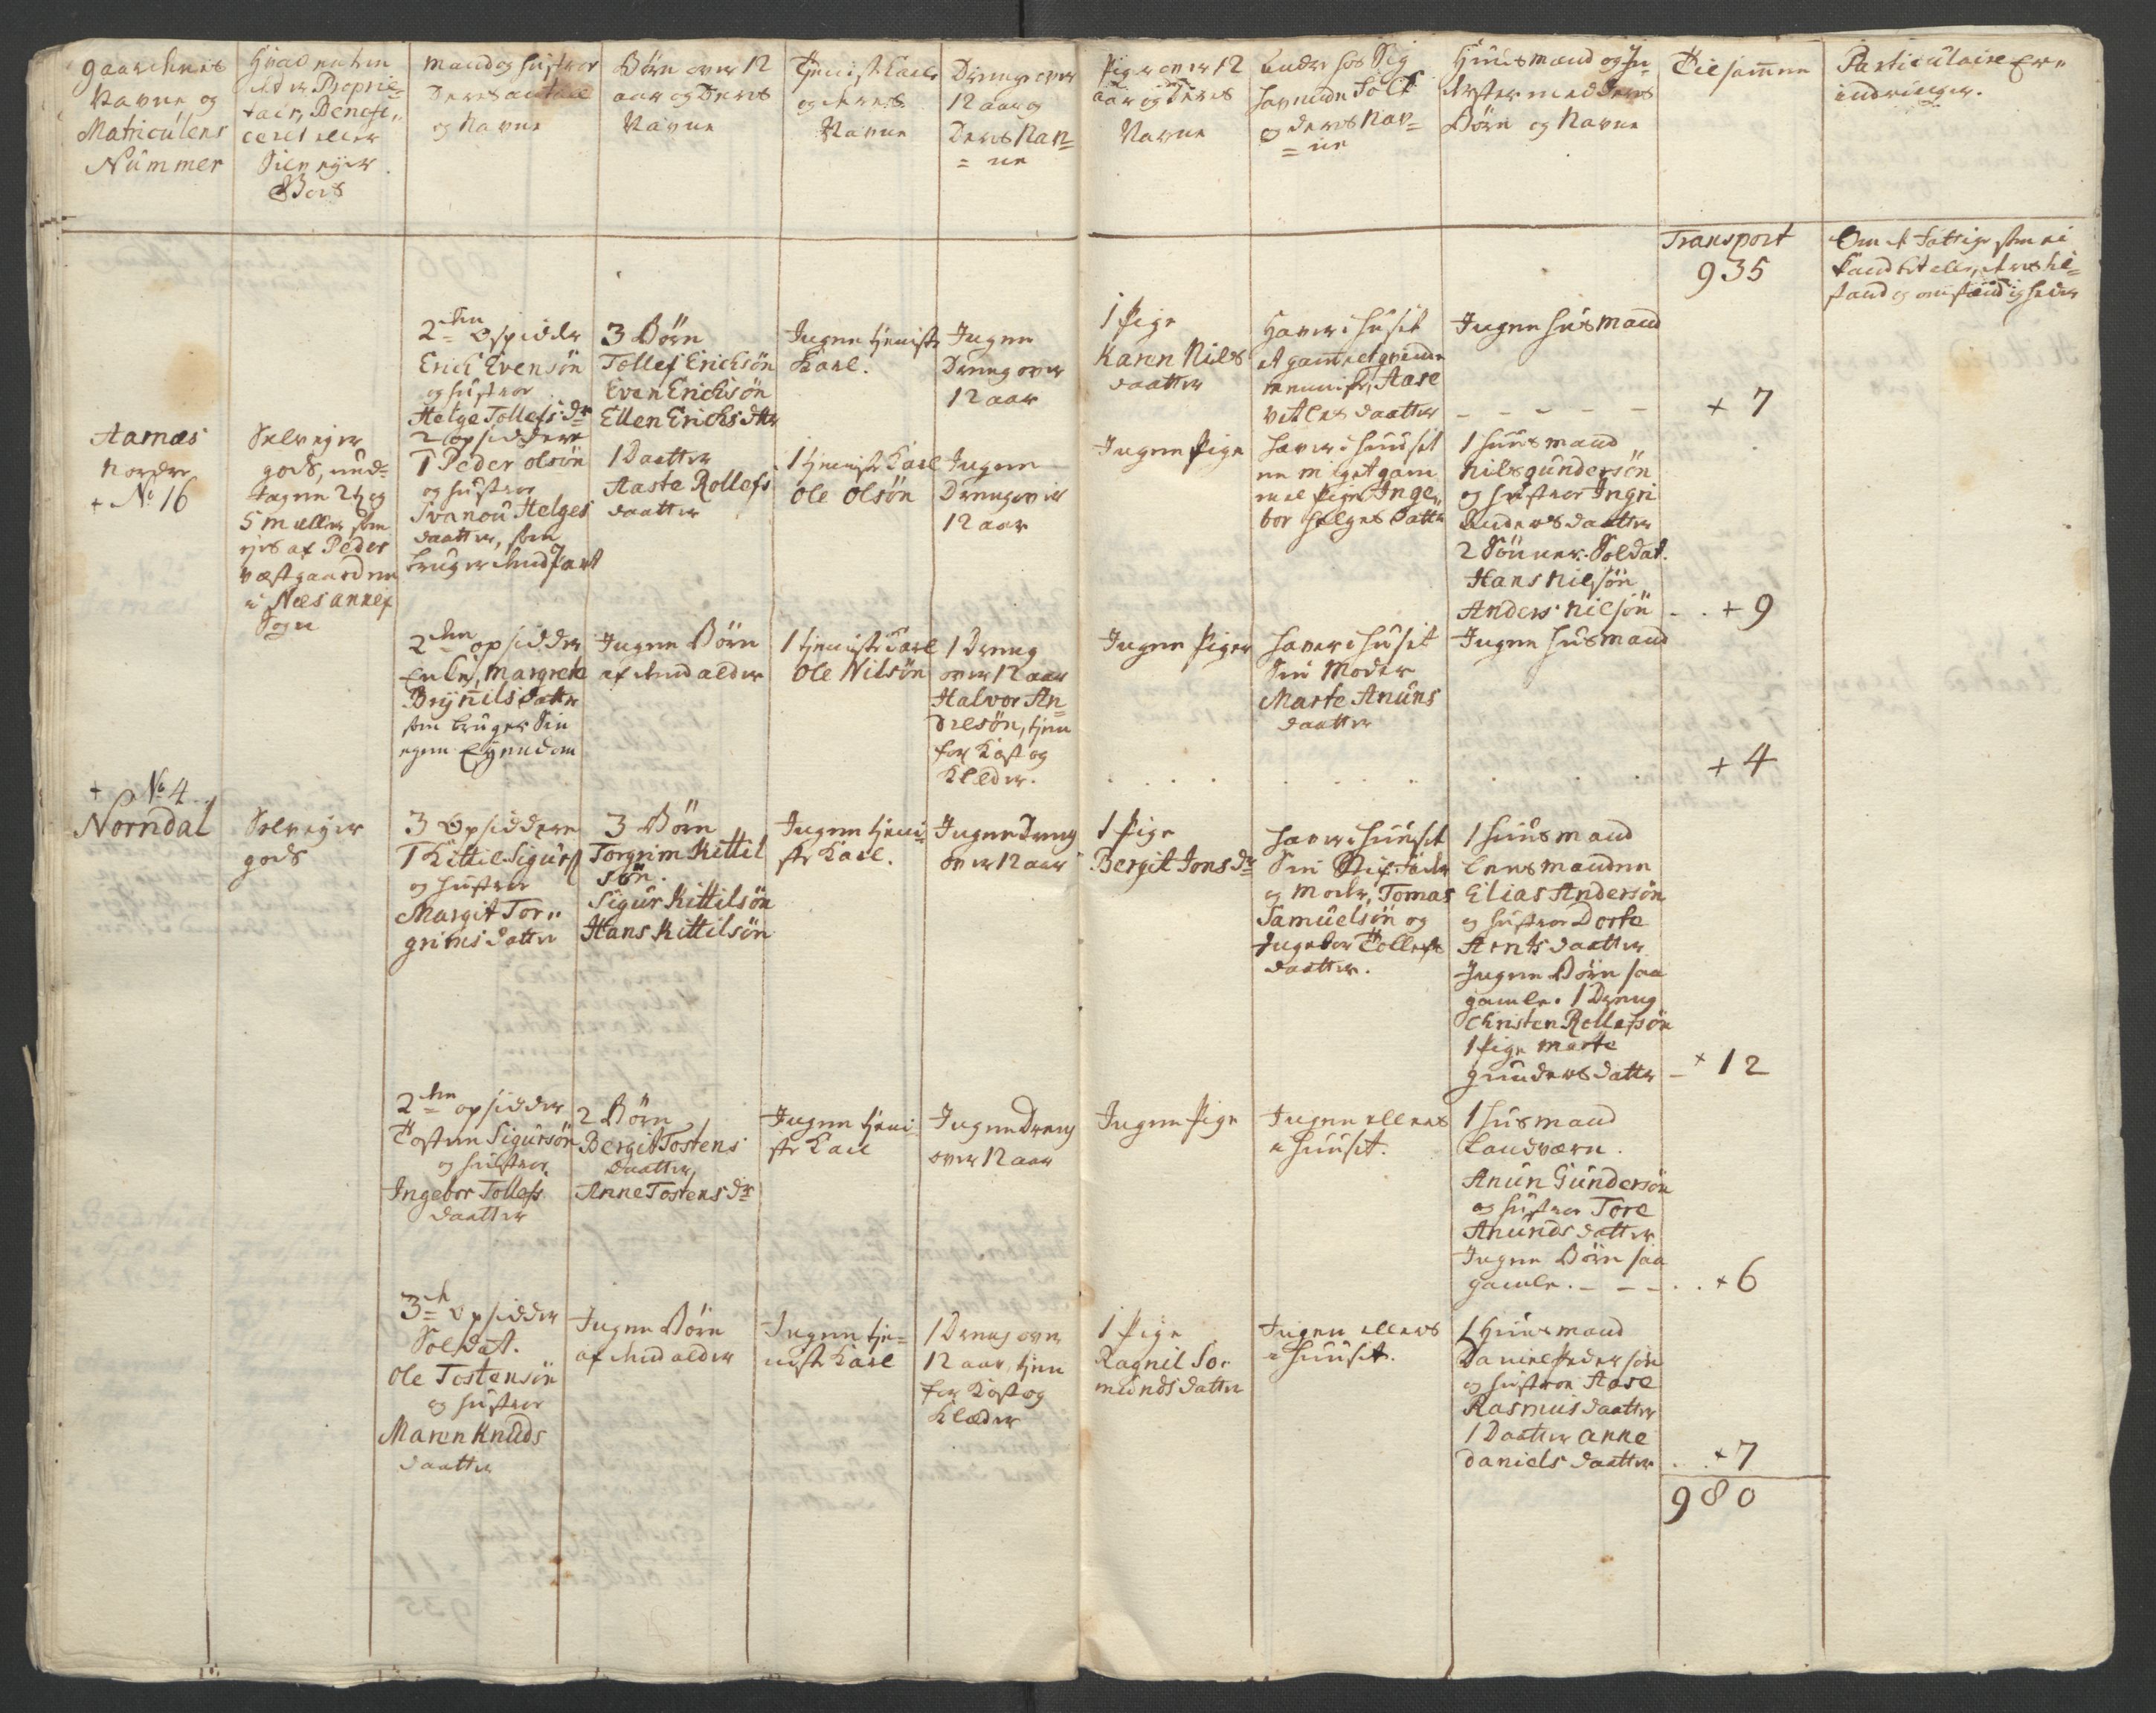 gaardenes
Navne og
Matriculens
Nummer
Hvad enten
det er Proprie=
tair, Benefi„
ceret eller
Selv eyer
Gods
Mand og hustroe
Deres antall
og Navne
Börn over 12
aar og Deres
Navne
Tjeniste Karle
og deres
Navne
Drenge over
12 aar og
Deres Nav=
= ne
Piger over 12
aar og Deres
Navne
Andre hos Sig
havende Folk
og deres Nav=
= ne
Huusmænd og In=
derster med deres
Börn og Navne
Tilsamen
Particulaire Er„
indringer.
Transport
935
Om de Fattige som ei
stand og omstændigheder
Aamæs
Nordre
+ No 16
Selveyer
gods, und=
tagen 2 og
5 m eller som
eies af Peder
Væstgaarden
i Nes annex
Sogn
2den Opsidder
Erich Evensön
og hustroe
Helge Tollefs dr
3 Börn
Tollef Erichsön
Even Erichsön
Ellen Erichs dtr
Ingen tjeniste
Karl.
Ingen
Dreng over
12 aar
1 Pige
Karen Niels
daatter
Haver i huset
et gamelt qvinde
menniske, Aase
Vetles daatter
Ingen husmand
- - - - -
+ 7
2 opsiddere
1 Peder olsön
og hustroe
Svanou Helges
daatter, som
bruger den Part
1 Daatter
Aaste Rollefs
daatter
1 tjeniste Karl
Ole Olsön
Ingen
Dreng over
12 aar
Ingen Pige
Haver i huuset
en meget gam
mel Pige Inge„
bor Helges datter
1 huusmand
Nils gundersön
og hustroe Ingri
Anders daatter
2 Sönner. Soldat.
Hans Nilsön
Anders Nilsön
- . + 9
2den opsidder
Enke, Margrete
Brynils datter
som bruger Sin
egen Eyendom
Ingen Börn
af den alder
1 tjeniste Karl
Ole Nilsön
1 Dreng
over 12 aar
Halvor An=
dresön, tjen
for Kost og
Klæder.
Ingen Piger
haver i huset
Sin Moder
Marte Anuns
daatter
Ingen husmand
+ 4
+ No 4
Norndal
Selveyer
gods
3 Opsiddere
1 Kittil Sigurs
og hustroe
Margit Tor„
grims datter
3 Börn
Torgrim Kittil
sön.
Sigur Kittilsön
Hans Kittilsön
Ingen tjeni=
ste Karl.
Ingen Dreng
over 12 aar
1 Pige
Bergit Jons dr
haver i huuset
Sin Stif Fader
og Moder, Tomas
Samuelsön og
Ingebor Tollefs
daatter.
1 huusmand
Lensmanden
Elias Andersön
og hustroe Dorte
Arnts daatter
Ingen Börn saa
gamle. 1 Dreng
Christen Rollefsön
1 Pige Marte
gunders datter -
+ 12
2den opsidder
Tosten Sigursön
og hustroe
Ingebor Tollefs
daatter
2 Börn
Bergit Tostens
daatter,
Anne Tostens dr
Ingen tjeni
ste Karl
Ingen Dreng
over 12 aar
Ingen Pige
Ingen ellers
i huuset.
1 husmand
Landværn.
Anun Gundersön
og hustroe Tore
Anunds datter
Ingen Börn saa
gamle. - - -
. . + 6
3die Opsidder
Soldat.
Ole Tostensön
og hustroe
Maren Knuds
daatter
Ingen Börn
af den alder
Ingen tje=
niste Karl
1 Dreng over
12 aar, tjen
for Kost og
Klæder
1 Pige
Ragnil So„
munds datter
Ingen ellers
i huuset.
1 Huusmand
Daniel Pedersön
og hustroe Aase
Rasmus daatter
1 Daatter Anne
Daniels daatter
. . + 7
980